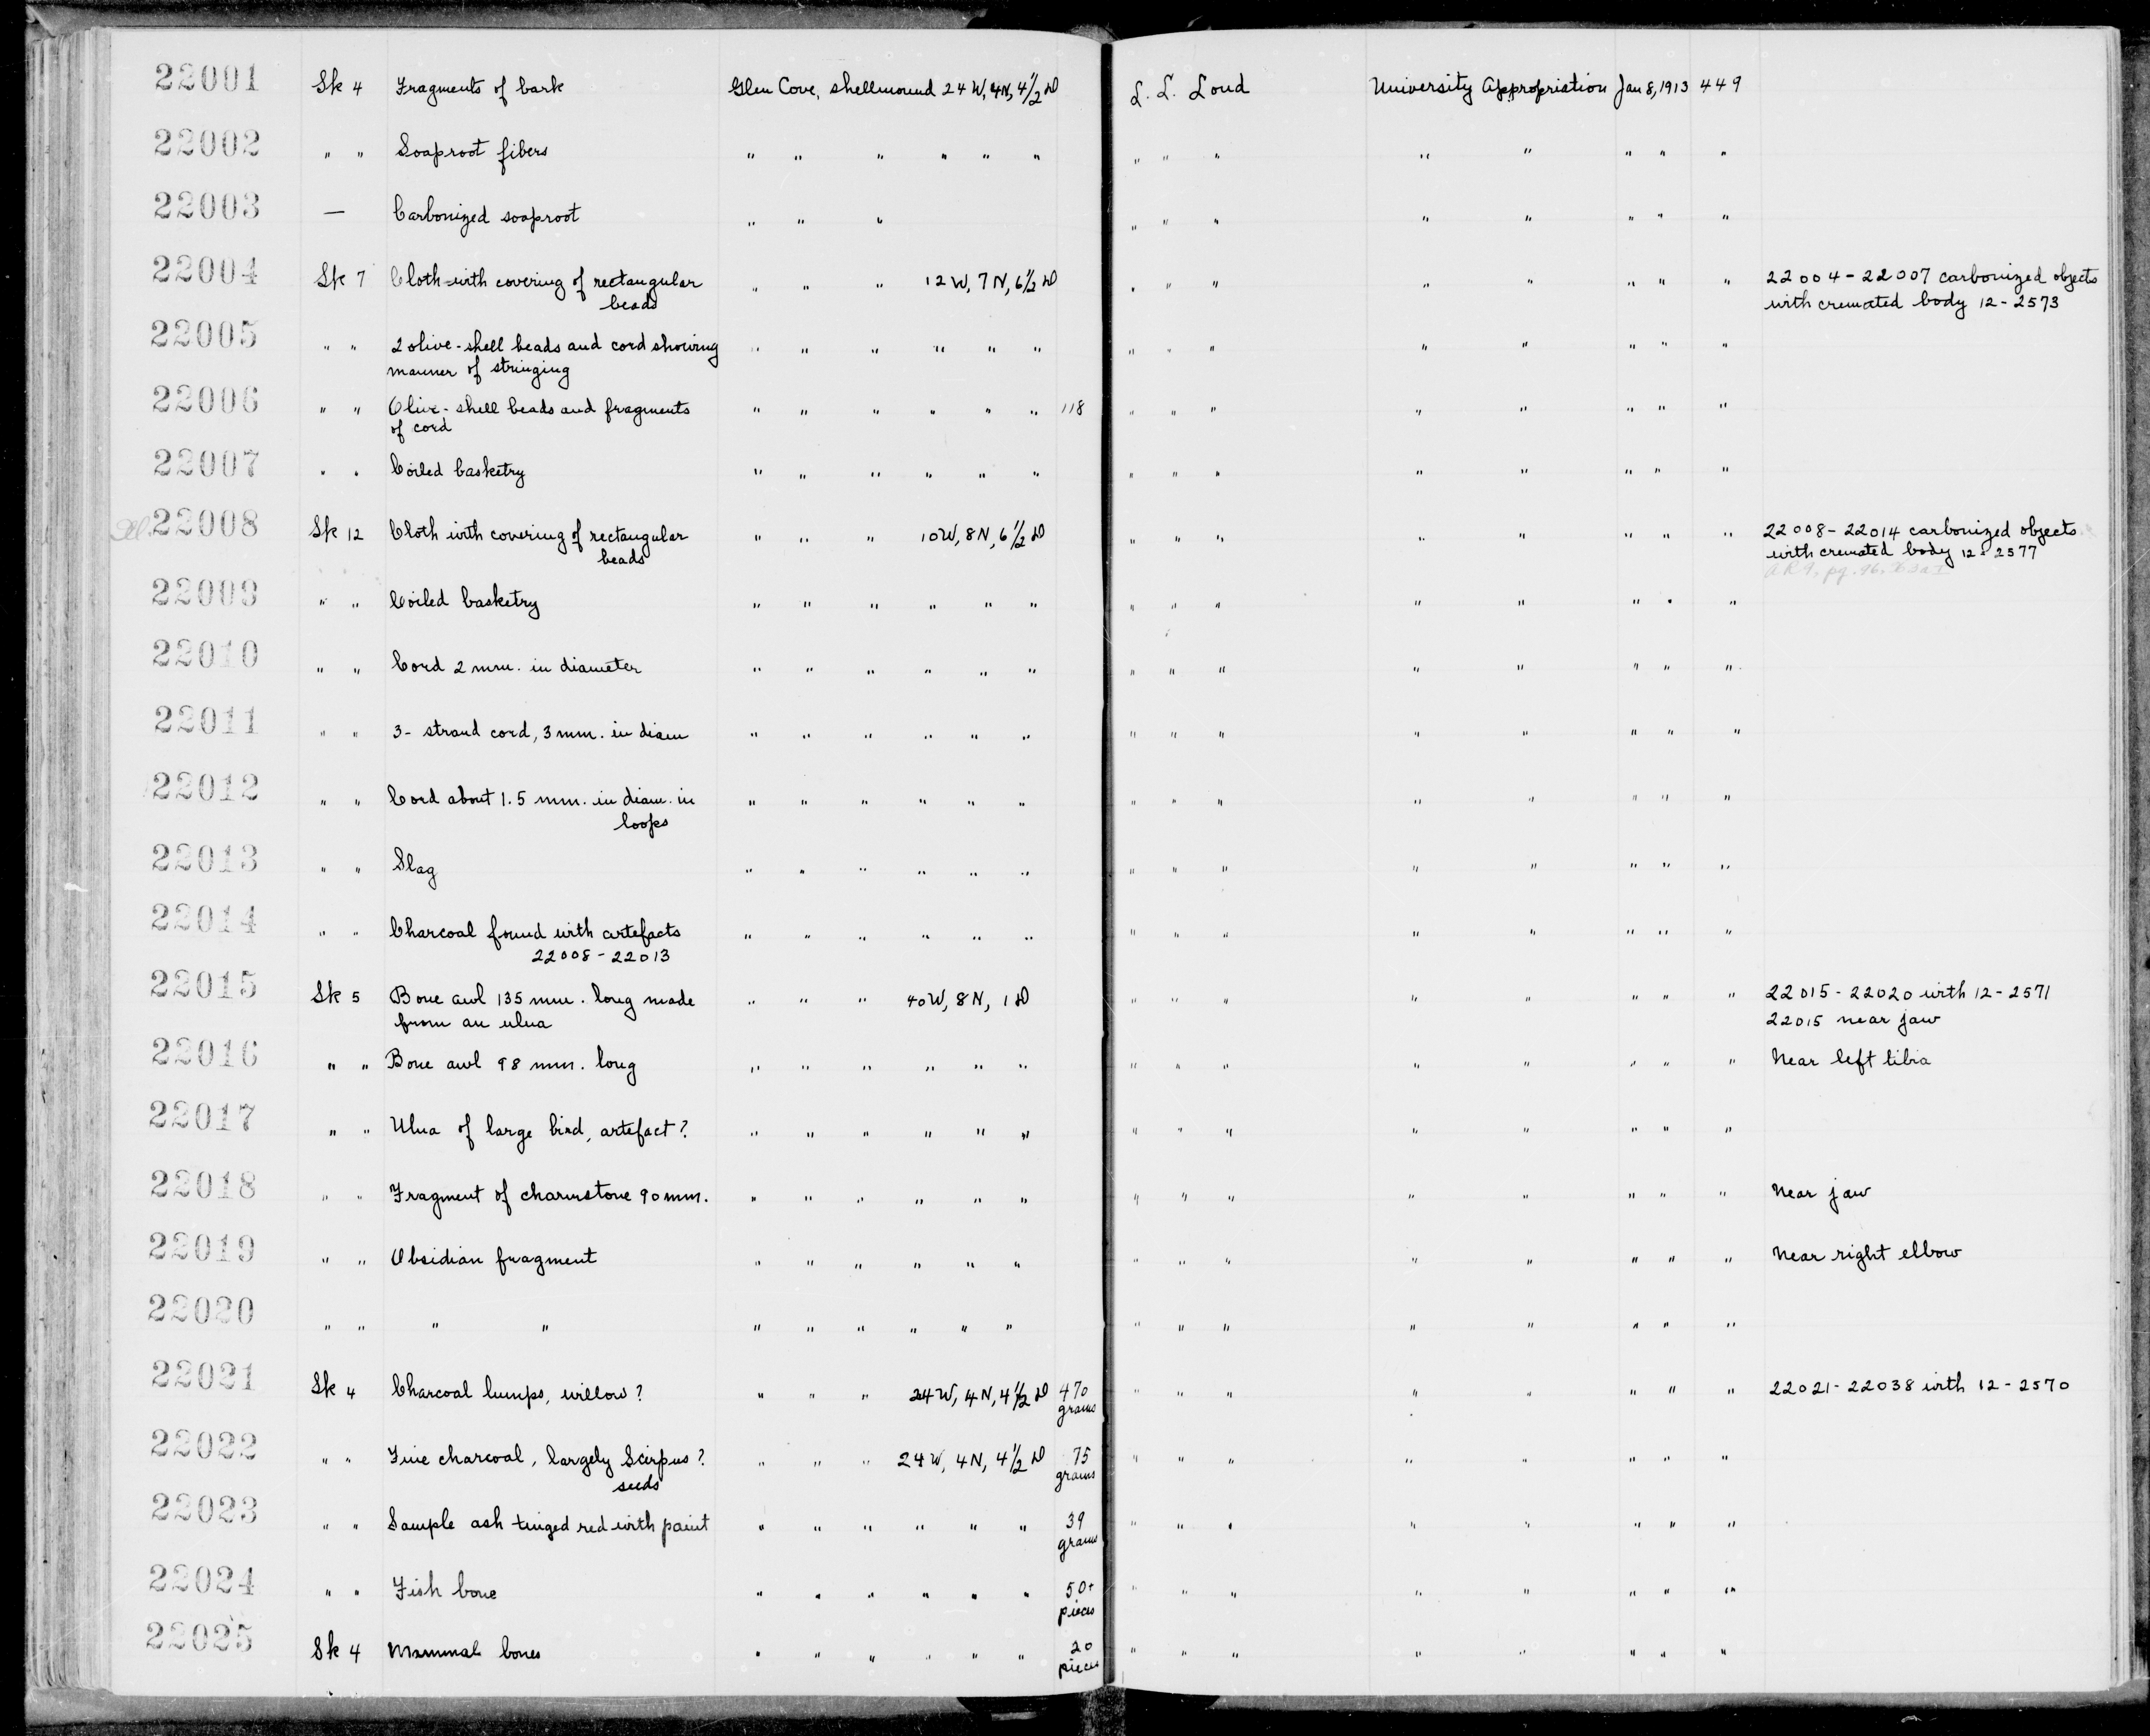 22001 Sk 4 Fragments of bark Glen Cove, shellmound 24 W, 4N, 4 1/2 D L. L. Loud University Appropriation Jan 8, 1913 449
22002 " " Soaproot fibers " " " " " " " " " " " " " "
22003 — Carbonized soaproot " " " " " " " " " " "
22004 Sk 7 Cloth with covering of rectangular " " " 12 W, 7 N, 6 1/2 D " " " " " " " " 22004 - 22007 carbonized objects
beads with cremated body 12 - 2573
22005 " " 2 olive-shell beads and cord showing " " " " " " " " " " " " " "
manner of stringing
22006 " " Olive-shell beads and fragments " " " " " " 118 " " " " " " " "
of cord
22007 " " Coiled basketry " " " " " " " " " " " " " "
22008 Sk 12 Cloth with covering of rectangular " " " 10 W, 8 N, 6 1/2 D " " " " " " " " 22008 - 22014 carbonized objects
beads with cremated body 12 - 2577
22009 " " Coiled basketry " " " " " " " " " " " " " "
22010 " " Cord 2 mm. in diameter " " " " " " " " " " " " " "
22011 " " 3- strand cord, 3 mm. in diam " " " " " " " " " " " " " "
22012 " " Cord about 1.5 mm. in diam. in " " " " " " " " " " " " " "
loops
22013 " " Slag " " " " " " " " " " " " " "
22014 " " Charcoal found with artefacts " " " " " " " " " " " " " "
22008 - 22013
22015 Sk 5 Bone awl 135 mm. long made " " " 40 W, 8 N, 1 D " " " " " " " " 22015 - 22020 with 12 - 2571
from an ulna 22015 near jaw
22016 " " Bone awl 98 mm. long " " " " " " " " " " " " " " Near left tibia
22017 " " Ulna of large bird, artefact? " " " " " " " " " " " " " "
22018 " " Fragment of charmstone 90 mm. " " " " " " " " " " " " " " Near jaw
22019 " " Obsidian fragment " " " " " " " " " " " " " " Near right elbow
22020 " " " " " " " " " " " " " " " " " "
22021 Sk 4 Charcoal lumps, willow? " " " 24 W, 4 N, 4 1/2 D 470 " " " " " " " " 22021 - 22038 with 12 - 2570
grams
22022 " " Fine charcoal, largely Scirpus? " " " 24 W, 4 N, 4 1/2 D 75 " " " " " " " "
seeds grams
22023 " " Sample ash tinged red with paint " " " " " " 39 " " " " " " " "
grams
22024 " " Fish bone " " " " " " 50+ " " " " " " " "
pieces
22025 Sk 4 Mammal bones " " " " " " 20 " " " " " " " "
pieces